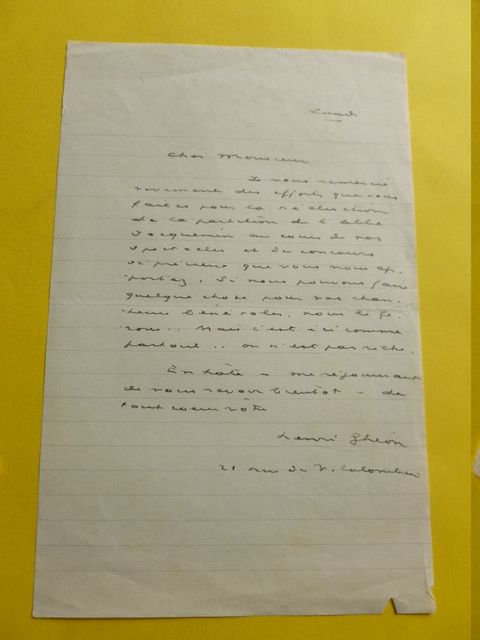 Lundi
Cher Monsieur
Je vous remercie
vivement des efforts que vous
faites pour la réalisation
de la partition de l'abbé
Jacquemin au cours de nos
spectacles et du concours
si précieux que vous nous ap-
portez. Si nous pouvons faire
quelque chose pour vos chan-
teurs bénévoles, nous le fe-
rons.. Mais c'est ici comme
partout.. on n'est pas riche.
En hâte – me réjouissant
de vous revoir bientôt – de
tout coeur vôtre
Henri Ghéon
21 rue du V. Colombier